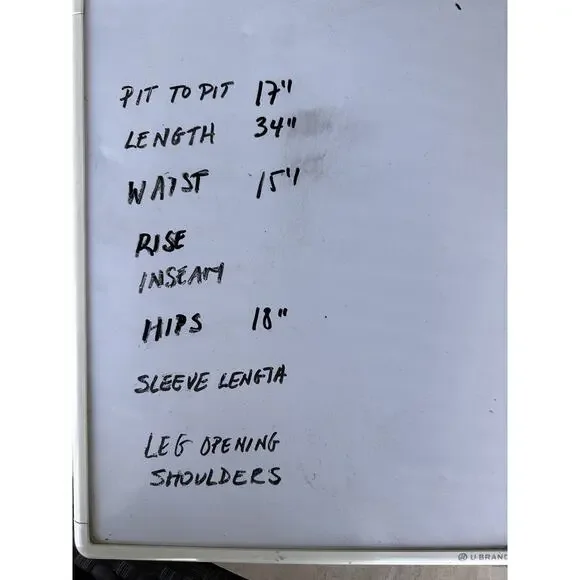 PIT TO PIT 17"
LENGTH 34"
WAIST 15"
RISE
INSEAM
HIPS 18"
SLEEVE LENGTH
LEG OPENING
SHOULDERS
U BRAND